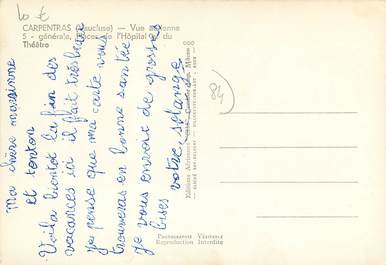 10 €
CARPENTRAS (Vaucluse) — Vue aérienne
5 - générale, Places de l'Hôpital et du
Théâtre
Ma chère marraine
et tonton
Voila bientôt la fin des
vacances ici il fait très beau
je pense que ma carte vous
trouveras en bonne santée
Je vous envoit de grosses
bises votre solange
84)
Editions Aériennes
PHOTOGRAPHIE VÉRITABLE
Reproduction Interdite